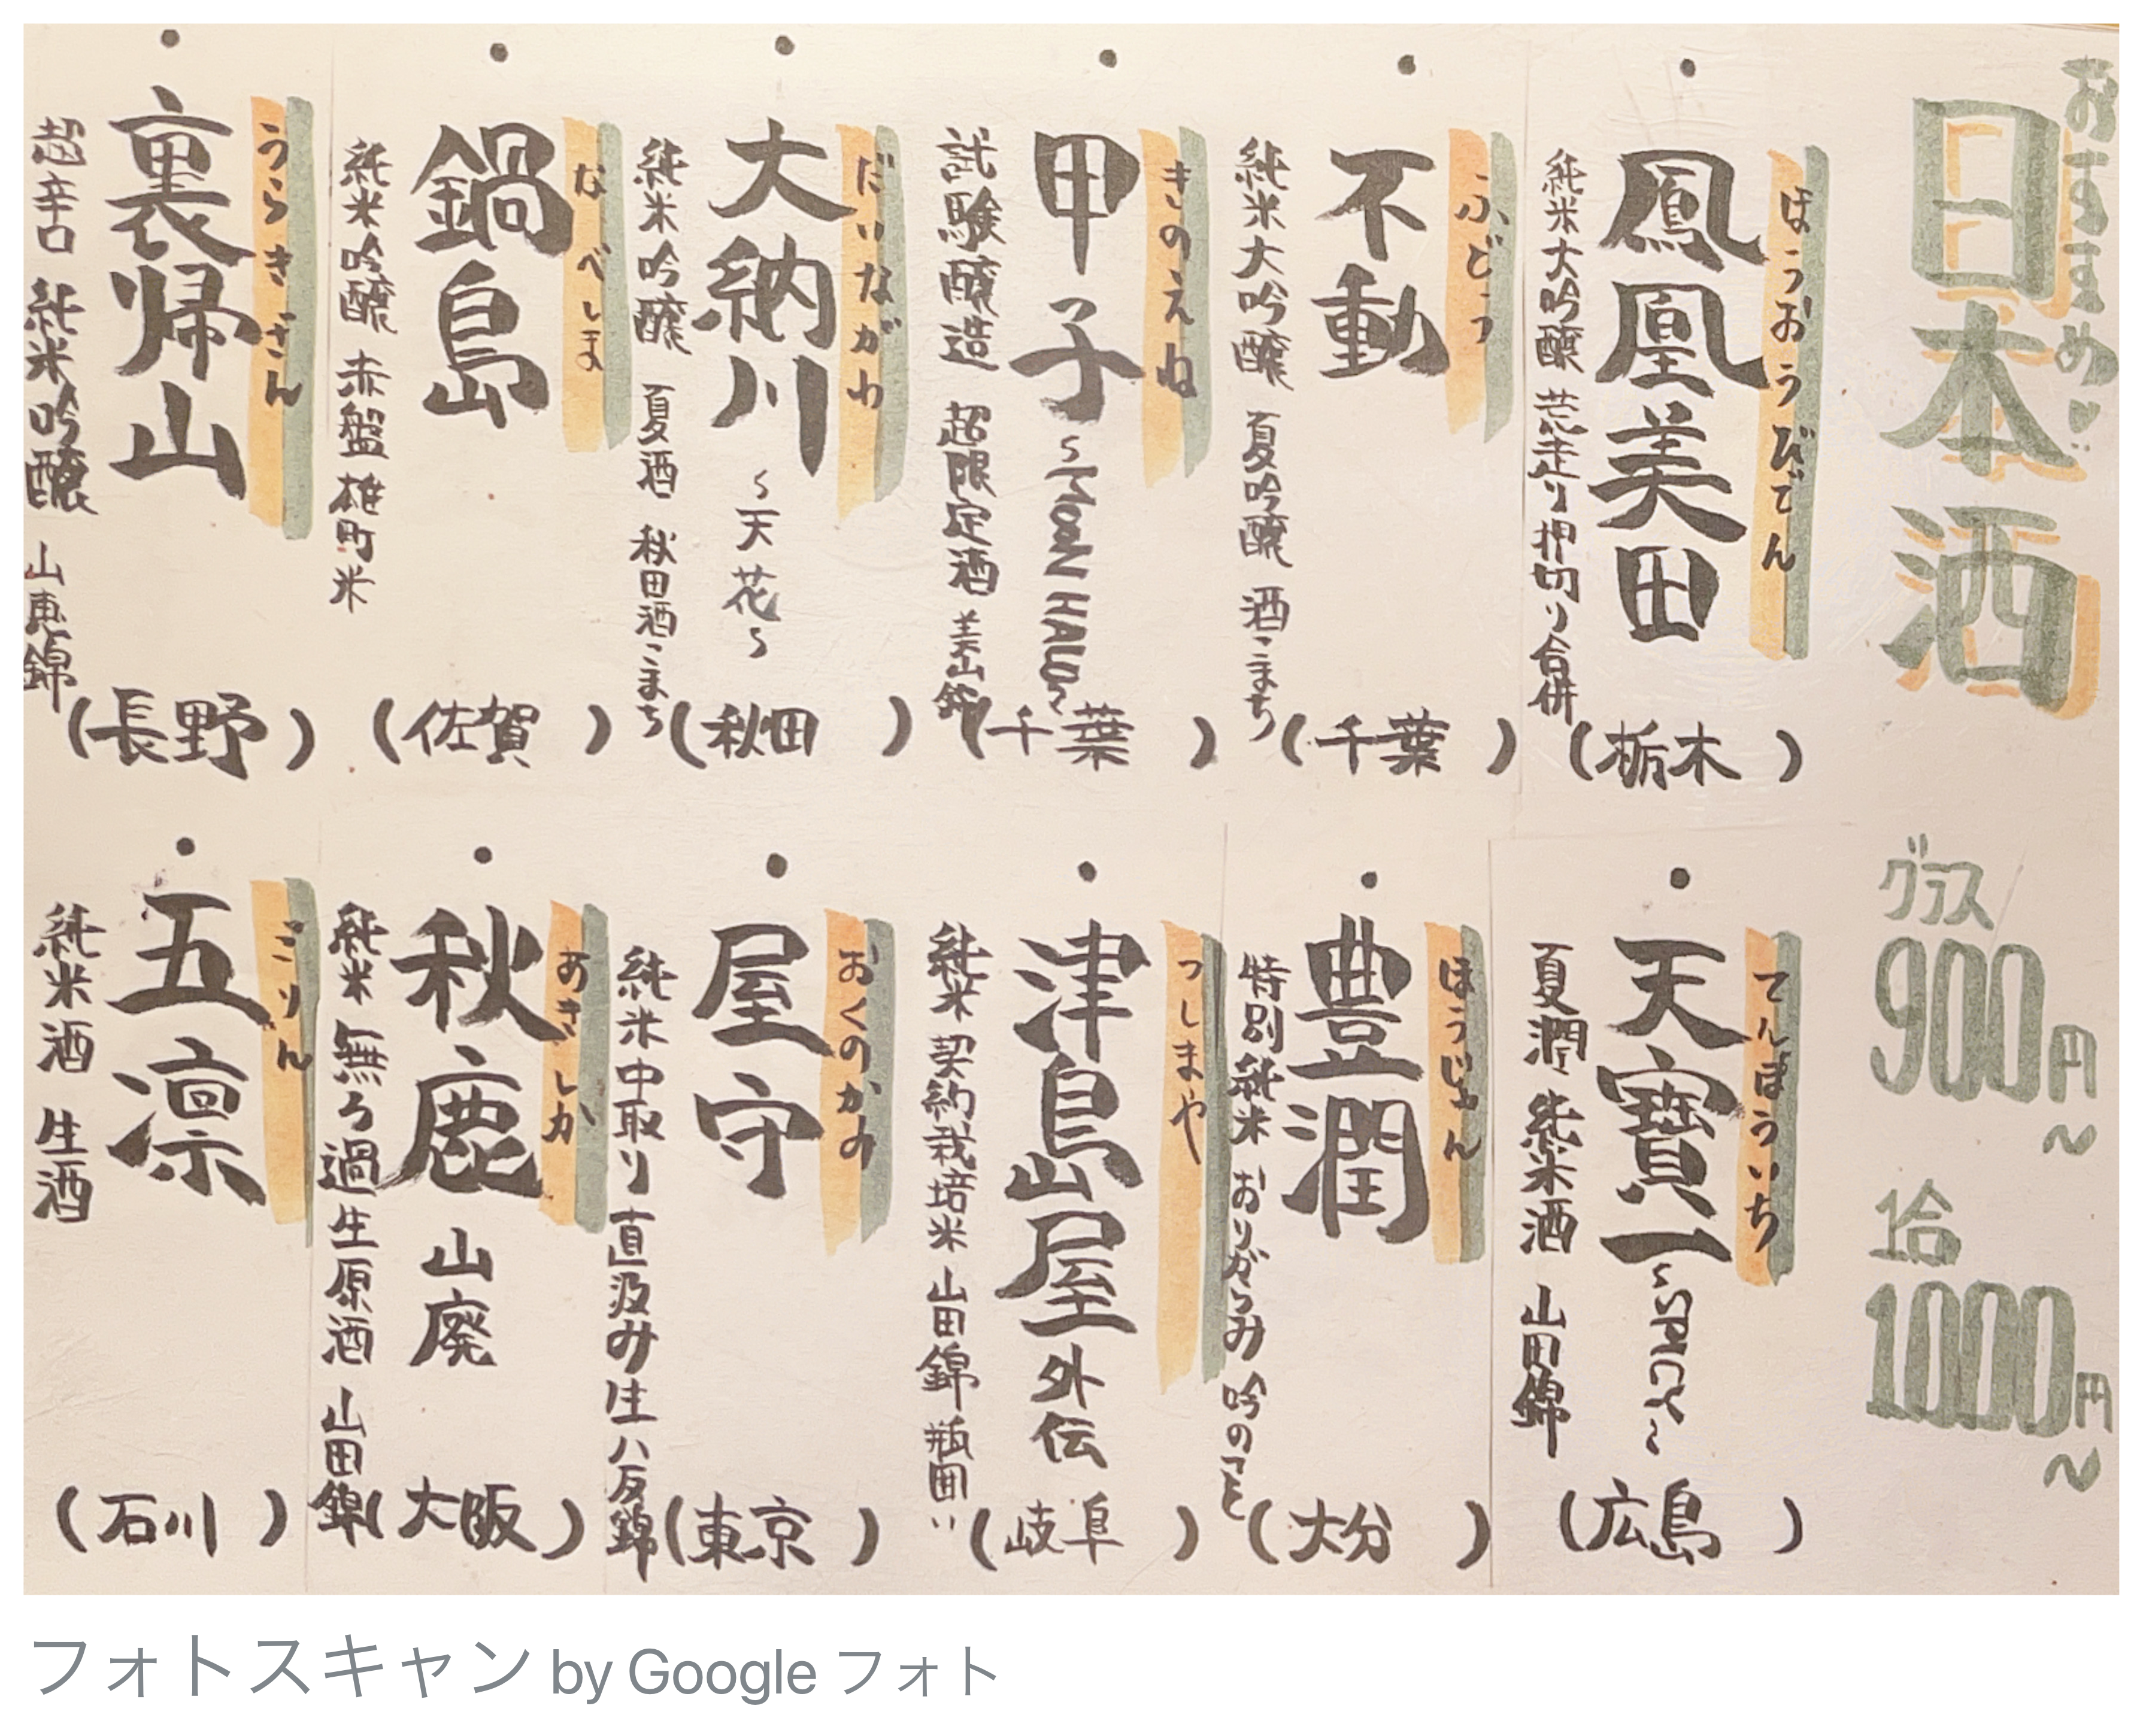 おすすめ♡
日本酒
グラス
900円~
1合
1000円~
・鳳凰美田
ほうおうびでん
純米大吟醸 荒走り押切り合併
(栃木)
・不動
ふどう
純米大吟醸 夏吟醸 酒こまち
(千葉)
・甲子
きのえね
試験醸造 超限定酒 美山錦
(千葉)
・大納川 ~天花~
だいながわ
純米吟醸 夏酒 秋田酒こまち
(秋田)
・鍋島
なべしま
純米吟醸 赤盤 雄町米
(佐賀)
・裏帰山
うらきざん
超辛口 純米吟醸 山恵錦
(長野)
・天寶一
てんぽういち
夏潤 純米酒 山田錦
(広島)
・豊潤
ほうじゅん
特別純米 おりがらみ 吟のさと
(大分)
・津島屋外伝
つしまや
純米 契約栽培米 山田錦 瓶囲い
(岐阜)
・屋守
おくのかみ
純米中取り直汲み生八反錦
(東京)
・秋鹿 山廃
あきしか
純米 無ろ過生原酒 山田錦
(大阪)
・五凛
ごりん
純米酒 生酒
(石川)
フォトスキャン by Google フォト